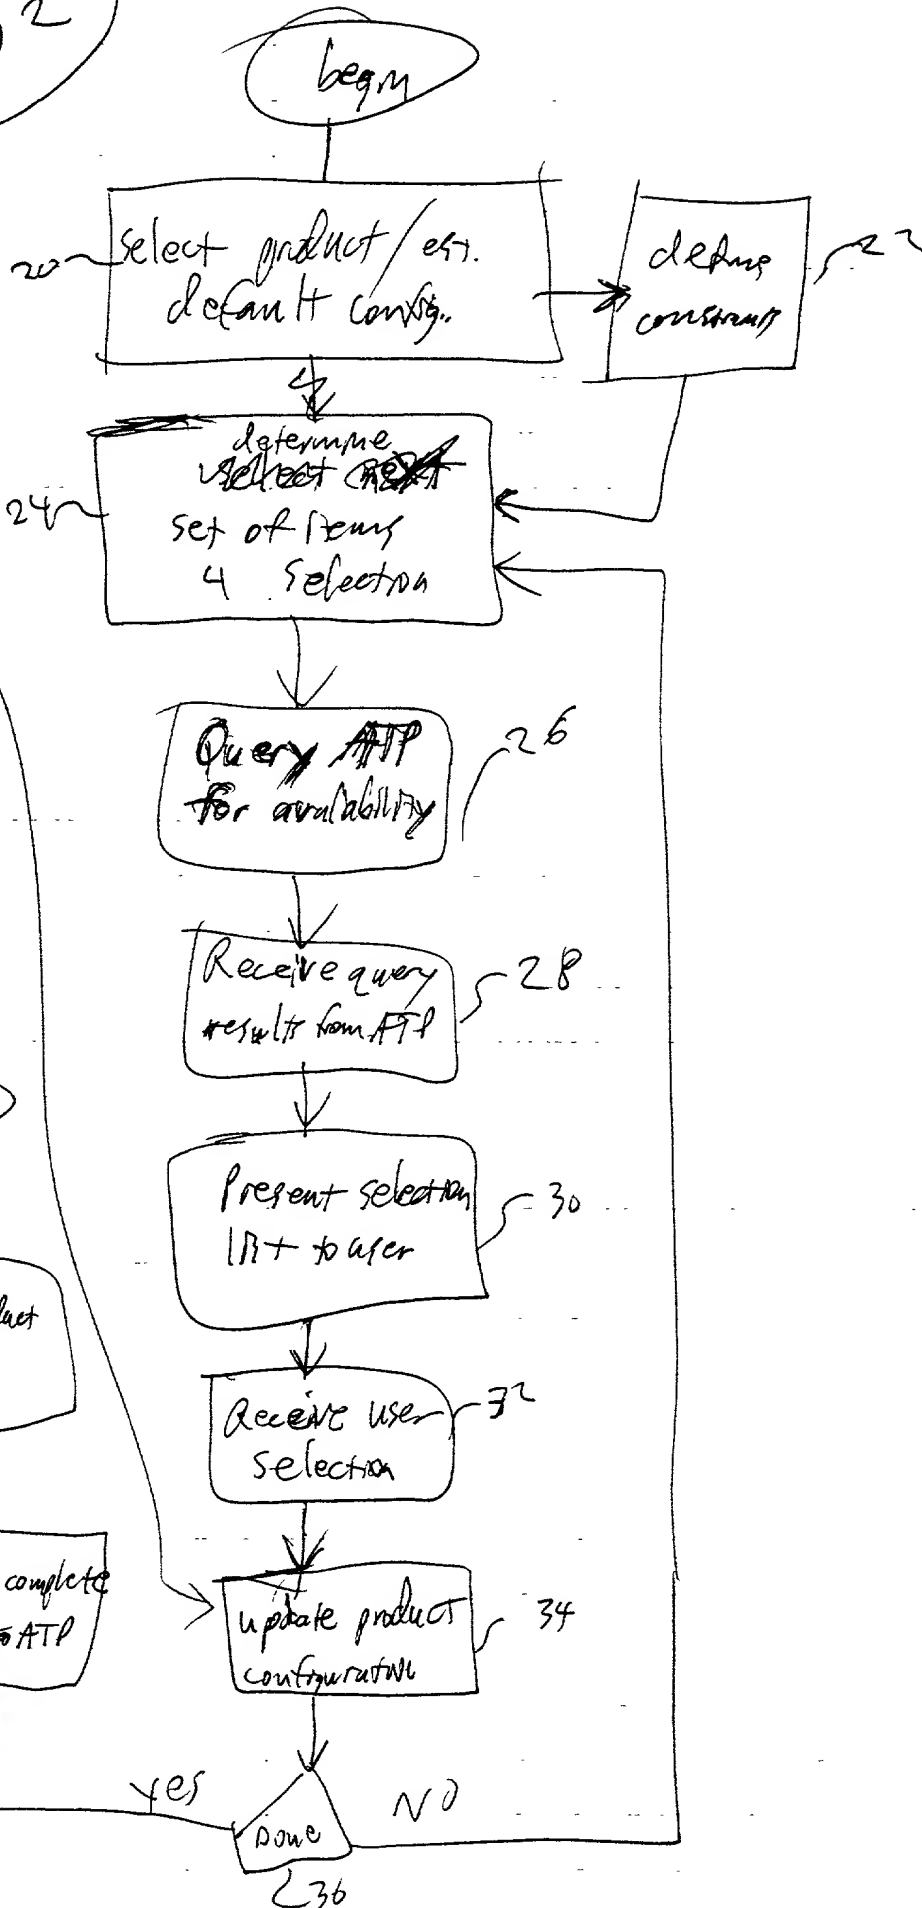 2
begin
20
select product / est.
default config.
define
constraints
22
24
determine
set of items
4 selection
Query ATP
for availability
26
Receive query
results from ATP
28
Present selection
to user
30
Receive user
selection
32
complete
ATP
update product
configuration
34
Yes
Done
NO
36